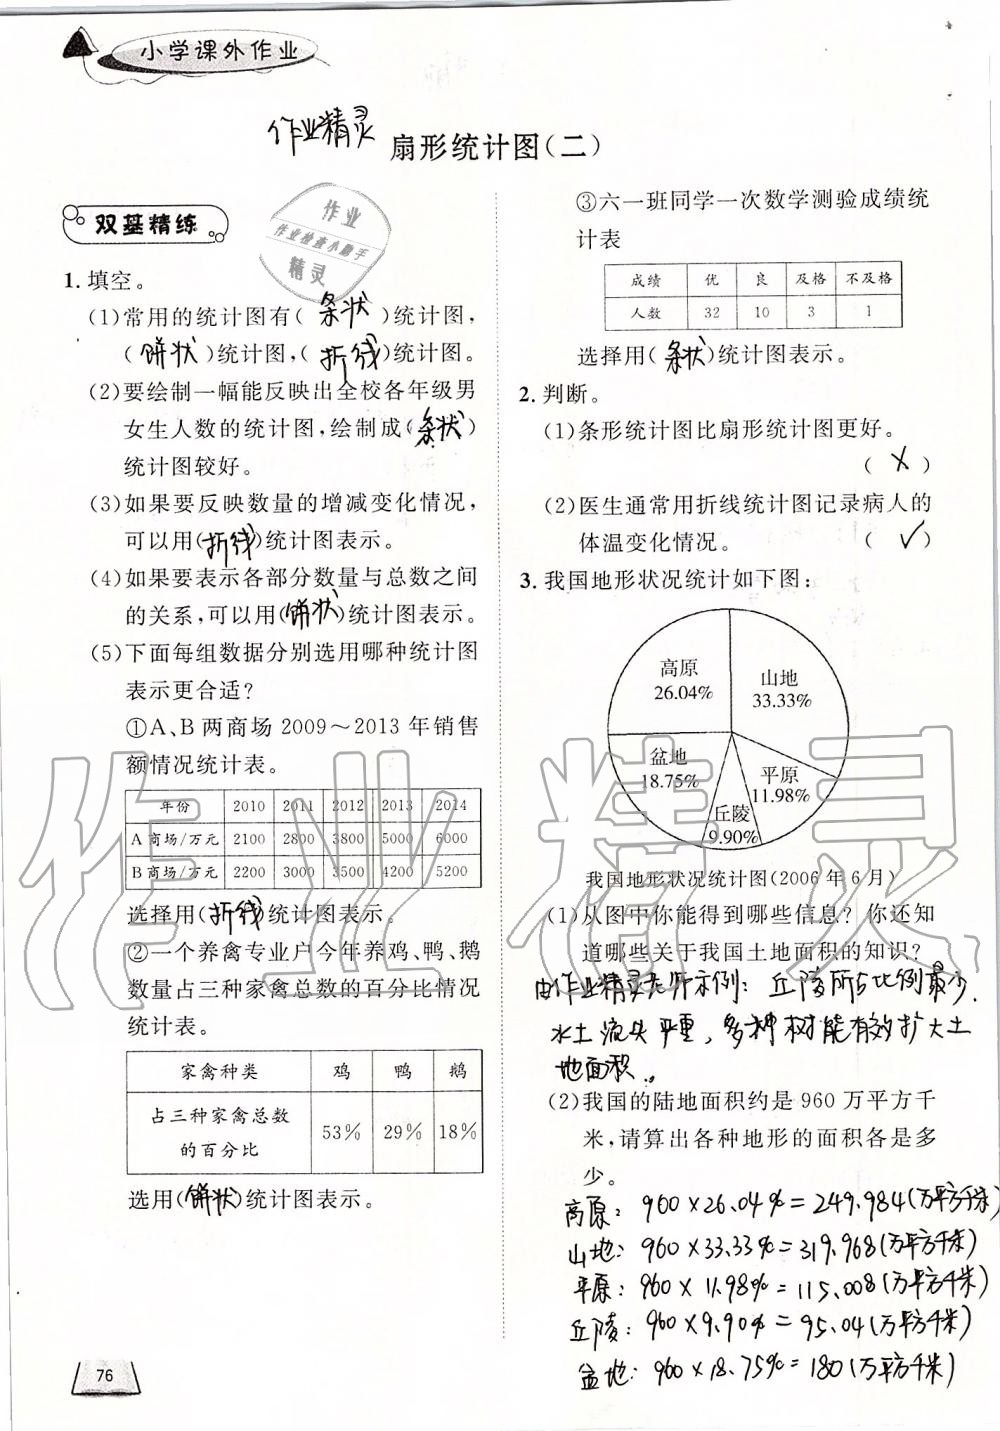 小学课外作业
作业精灵
扇形统计图(二)
作业
作业检查小助手
精灵
双基精练
1. 填空。
(1)常用的统计图有(条状)统计图,
(饼状)统计图,(折线)统计图。
(2)要绘制一幅能反映出全校各年级男
女生人数的统计图,绘制成(条状)
统计图较好。
(3)如果要反映数量的增减变化情况,
可以用(折线)统计图表示。
(4)如果要表示各部分数量与总数之间
的关系,可以用(饼状)统计图表示。
(5)下面每组数据分别选用哪种统计图
表示更合适?
①A、B两商场2009～2013年销售
额情况统计表。
年份 2010 2011 2012 2013 2014
A商场/万元 2100 2800 3800 5000 6000
B商场/万元 2200 3000 3500 4200 5200
选择用(折线)统计图表示。
②一个养禽专业户今年养鸡、鸭、鹅
数量占三种家禽总数的百分比情况
统计表。
家禽种类 鸡 鸭 鹅
占三种家禽总数
的百分比 53% 29% 18%
选用(饼状)统计图表示。
76
③六一班同学一次数学测验成绩统
计表
成绩 优 良 及格 不及格
人数 32 10 3 1
选择用(条状)统计图表示。
2. 判断。
(1)条形统计图比扇形统计图更好。
(×)
(2)医生通常用折线统计图记录病人的
体温变化情况。 (√)
3. 我国地形状况统计如下图:
高原
26.04%
山地
33.33%
盆地
18.75%
平原
11.98%
丘陵
9.90%
我国地形状况统计图(2006年6月)
(1)从图中你能得到哪些信息?你还知
道哪些关于我国土地面积的知识?
由作业精灵允许示例: 丘陵所占比例最少.
水土流失严重, 多种树能有效扩大土
地面积。
(2)我国的陆地面积约是960万平方千
米,请算出各种地形的面积各是多
少。
高原: 960×26.04%=249.984(万平方千米)
山地: 960×33.33%=319.968(万平方千米)
平原: 960×11.98%=115.008(万平方千米)
丘陵: 960×9.90%=95.04(万平方千米)
盆地: 960×18.75%=180(万平方千米)
作业精灵